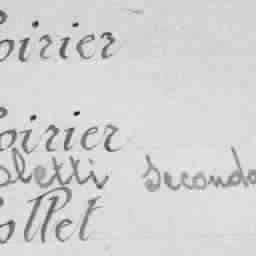 Poirier
Poirier
oletti Seconda
ollet